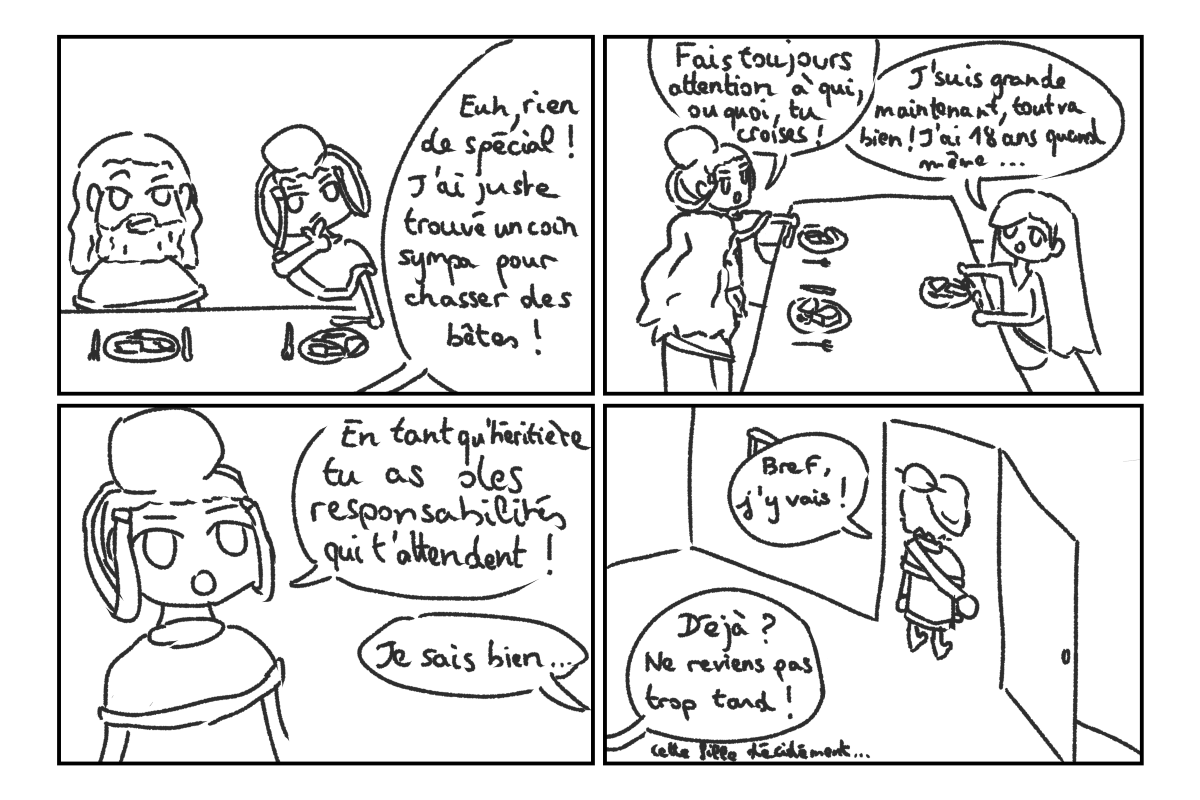 Euh, rien
de spécial !
J'ai juste
trouvé un coin
sympa pour
chasser des
bêtes !
Fais toujours
attention à qui,
ou quoi, tu
croises !
J'suis grande
maintenant, tout va
bien ! J'ai 18 ans quand
même ...
En tant qu'héritière
tu as des
responsabilités
qui t'attendent !
Je sais bien...
Bref,
j'y vais !
Déjà ?
Ne reviens pas
trop tard !
cette fille décidément...